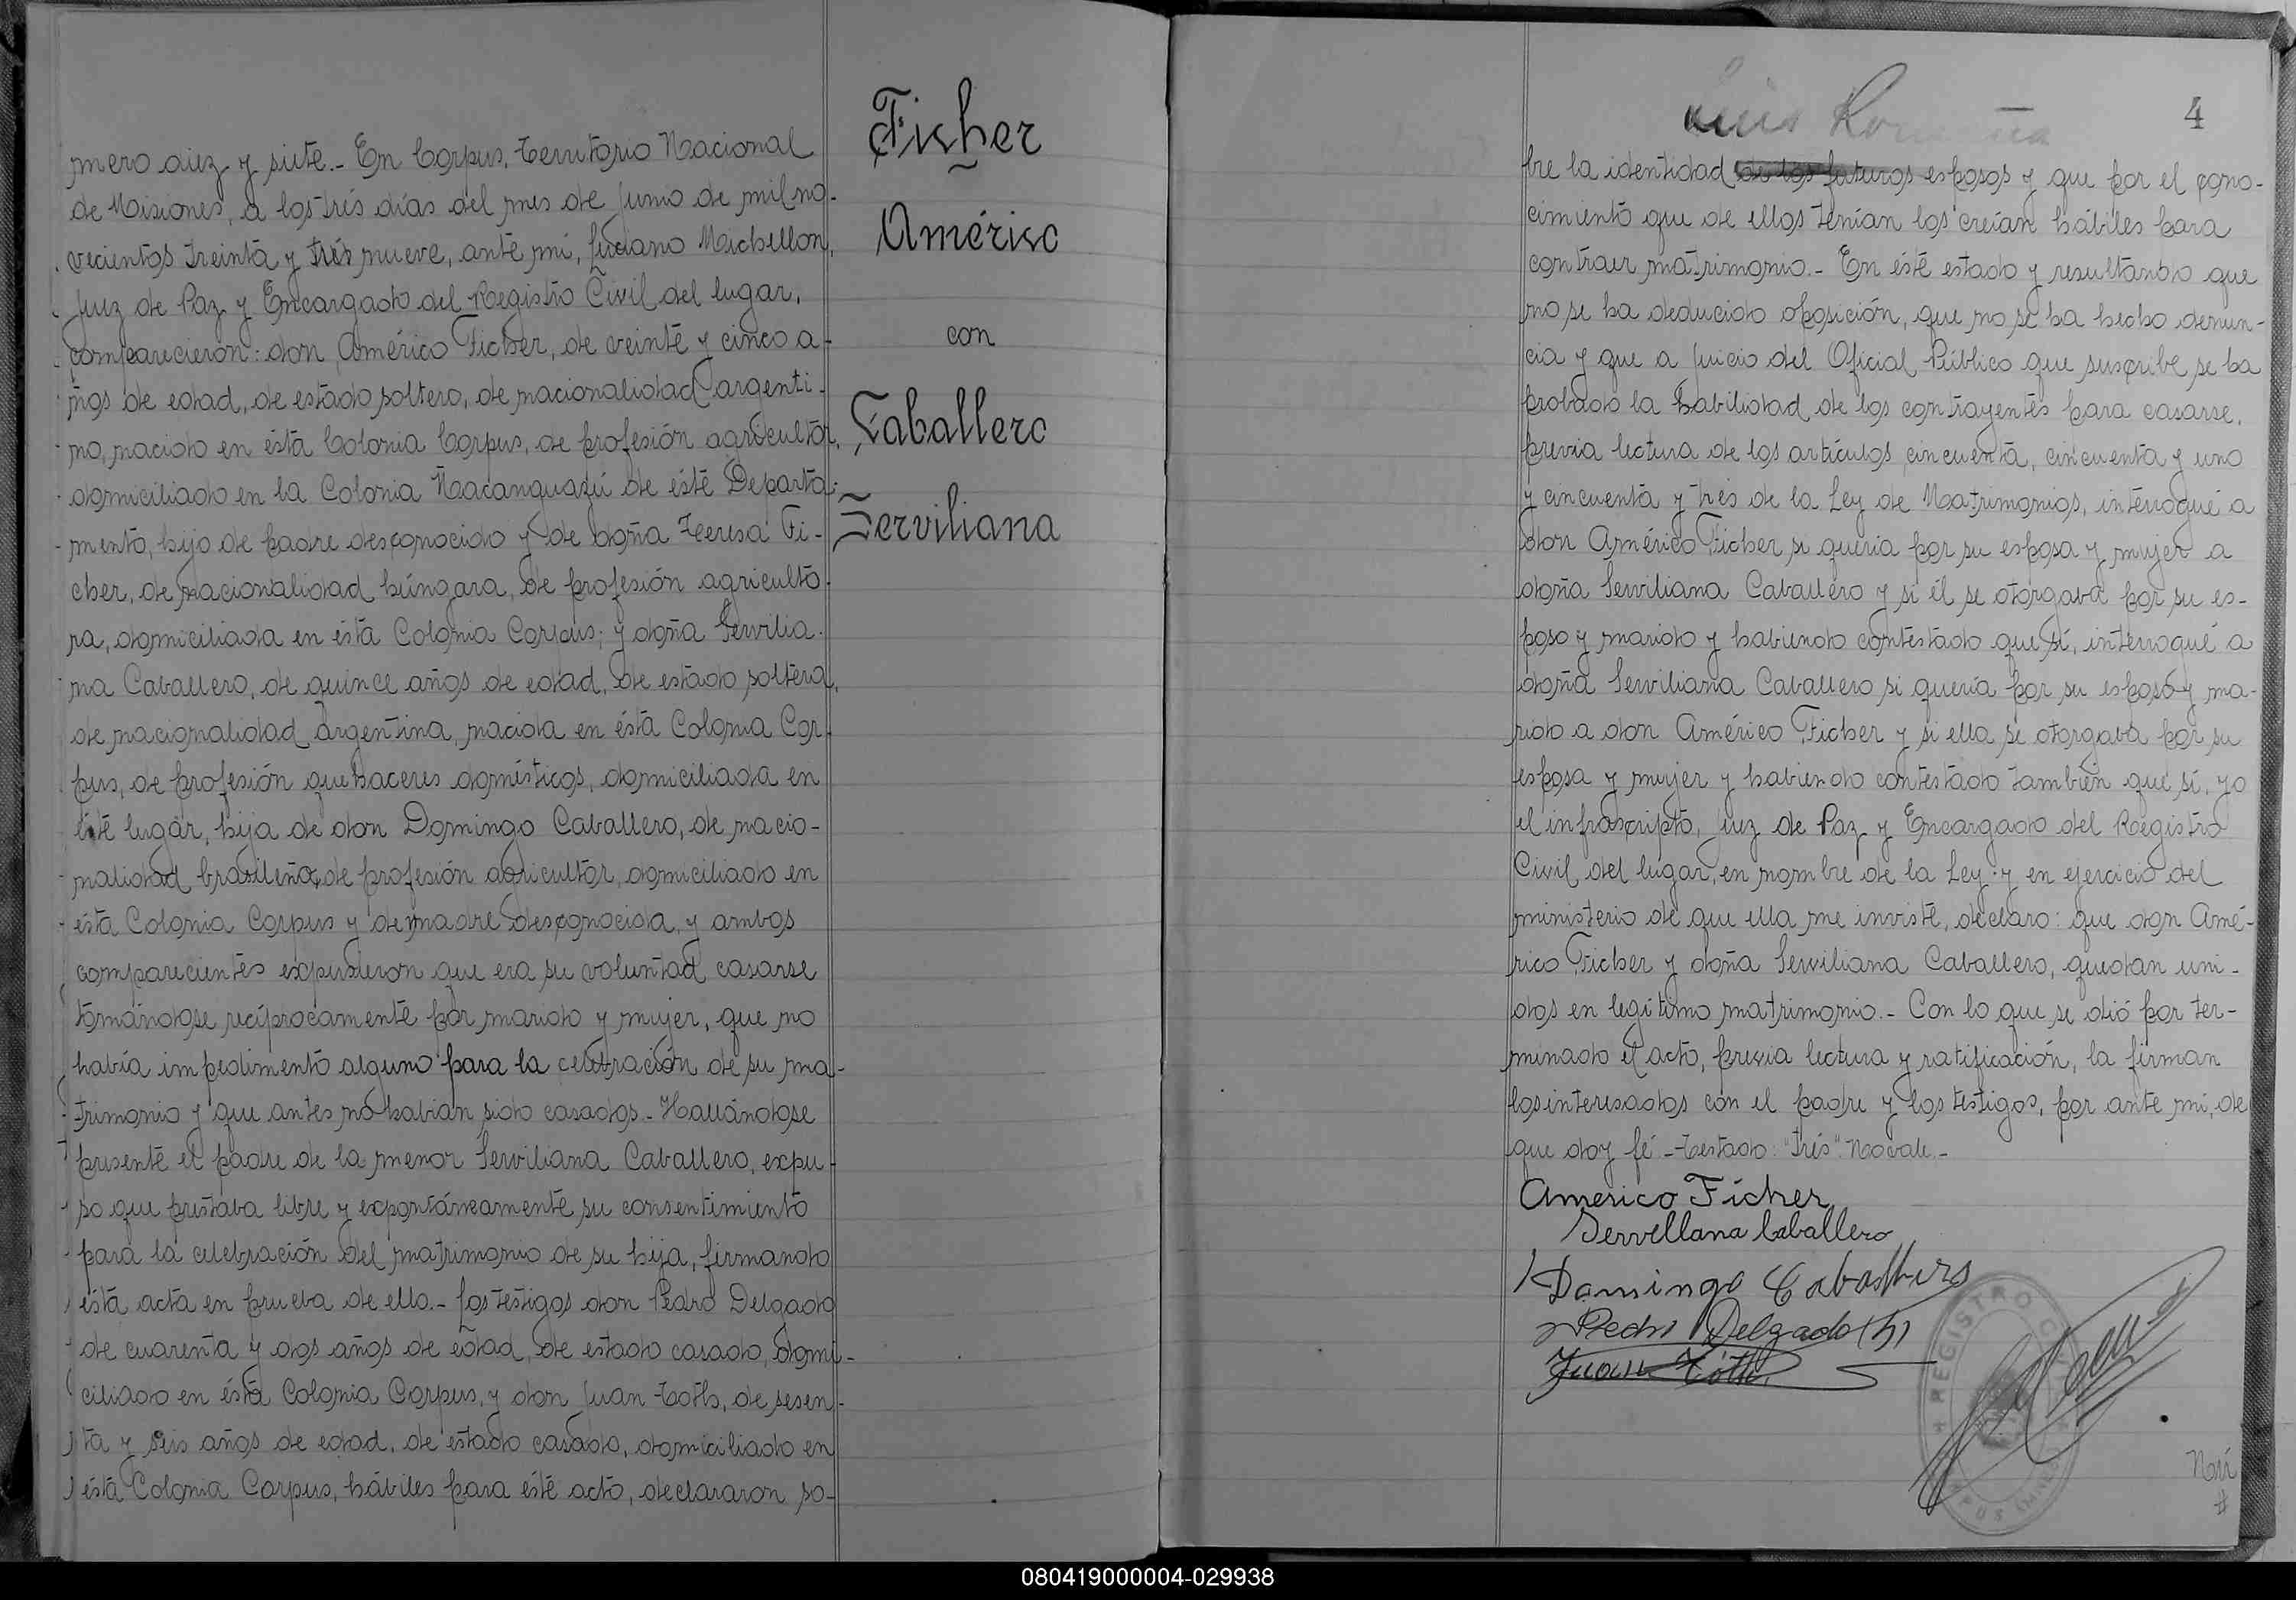 mero diez y siete.- En Corpus, Territorio Nacional
de Misiones, a los trés días del mes de Junio de mil no-
vecientos treinta y trés nueve, ante mí, Luciano Michellon,
Juez de Paz y Encargado del Registro Civil del lugar,
comparecieron: don Américo Ficher, de veinte y cinco a-
ños de edad, de estado soltero, de nacionalidad argenti-
no, nacido en ésta Colonia Corpus, de profesión agricultor,
domiciliado en la Colonia Ñacanguazú de éste Departa-
mento, hijo de padre desconocido y de doña Teresa Fi-
cher, de nacionalidad húngara, de profesión agriculto-
ra, domiciliada en ésta Colonia Corpus; y doña Servilia-
na Caballero, de quince años de edad, de estado soltera,
de nacionalidad argentina, nacida en ésta Colonia Cor-
pus, de profesión quehaceres domésticos, domiciliada en
éste lugar, hija de don Domingo Caballero, de nacio-
nalidad brasileña, de profesión agricultor, domiciliado en
ésta Colonia Corpus y de madre desconocida, y ambos
comparecientes expusieron que era su voluntad casarse
tomándose recíprocamente por marido y mujer, que no
había impedimento alguno para la celebración de su ma-
trimonio y que antes no habían sido casados.- Hallándose
presente el padre de la menor Serviliana Caballero, expu-
so que prestaba libre y expontáneamente su consentimiento
para la celebración del matrimonio de su hija, firmando
ésta acta en prueba de ello.- Los testigos don Pedro Delgado
de cuarenta y dos años de edad, de estado casado, domi-
ciliado en ésta Colonia Corpus, y don Juan Toth, de sesen-
ta y seis años de edad, de estado casado, domiciliado en
ésta Colonia Corpus, hábiles para éste acto, declararon so-
Ficher
Américo
con
Caballero
Serviliana
4
Luis
bre la identidad de los futuros esposos y que por el cono-
cimiento que de ellos tenían los creían hábiles para
contraer matrimonio.- En éste estado y resultando que
no se ha deducido oposición, que no se ha hecho denun-
cia y que a juicio del Oficial Público que suscribe se ha
probado la habilidad de los contrayentes para casarse,
previa lectura de los artículos cincuenta, cincuenta y uno
y cincuenta y trés de la Ley de Matrimonios, interrogué a
don Américo Ficher si quería por su esposa y mujer a
doña Serviliana Caballero y si él se otorgaba por su es-
poso y marido y habiendo contestado que sí, interrogué a
doña Serviliana Caballero si quería por su esposo y ma-
rido a don Américo Ficher y si ella se otorgaba por su
esposa y mujer y habiendo contestado también que sí, yo
el infrascripto, Juez de Paz y Encargado del Registro
Civil del lugar, en nombre de la Ley y en ejercicio del
ministerio de que ella me inviste, declaro: que don Amé-
rico Ficher y doña Serviliana Caballero, quedan uni-
dos en legítimo matrimonio.- Con lo que se dió por ter-
minado el acto, previa lectura y ratificación, la firman
los interesados con el padre y los testigos, por ante mí, de
que doy fé.- Testado: "trés". No vale.-
Americo Ficher
Servellana Caballero
Domingo Caballero
Pedro Delgado (h)
Juan Tóth
REGISTRO
Nú
#
080419000004-029938